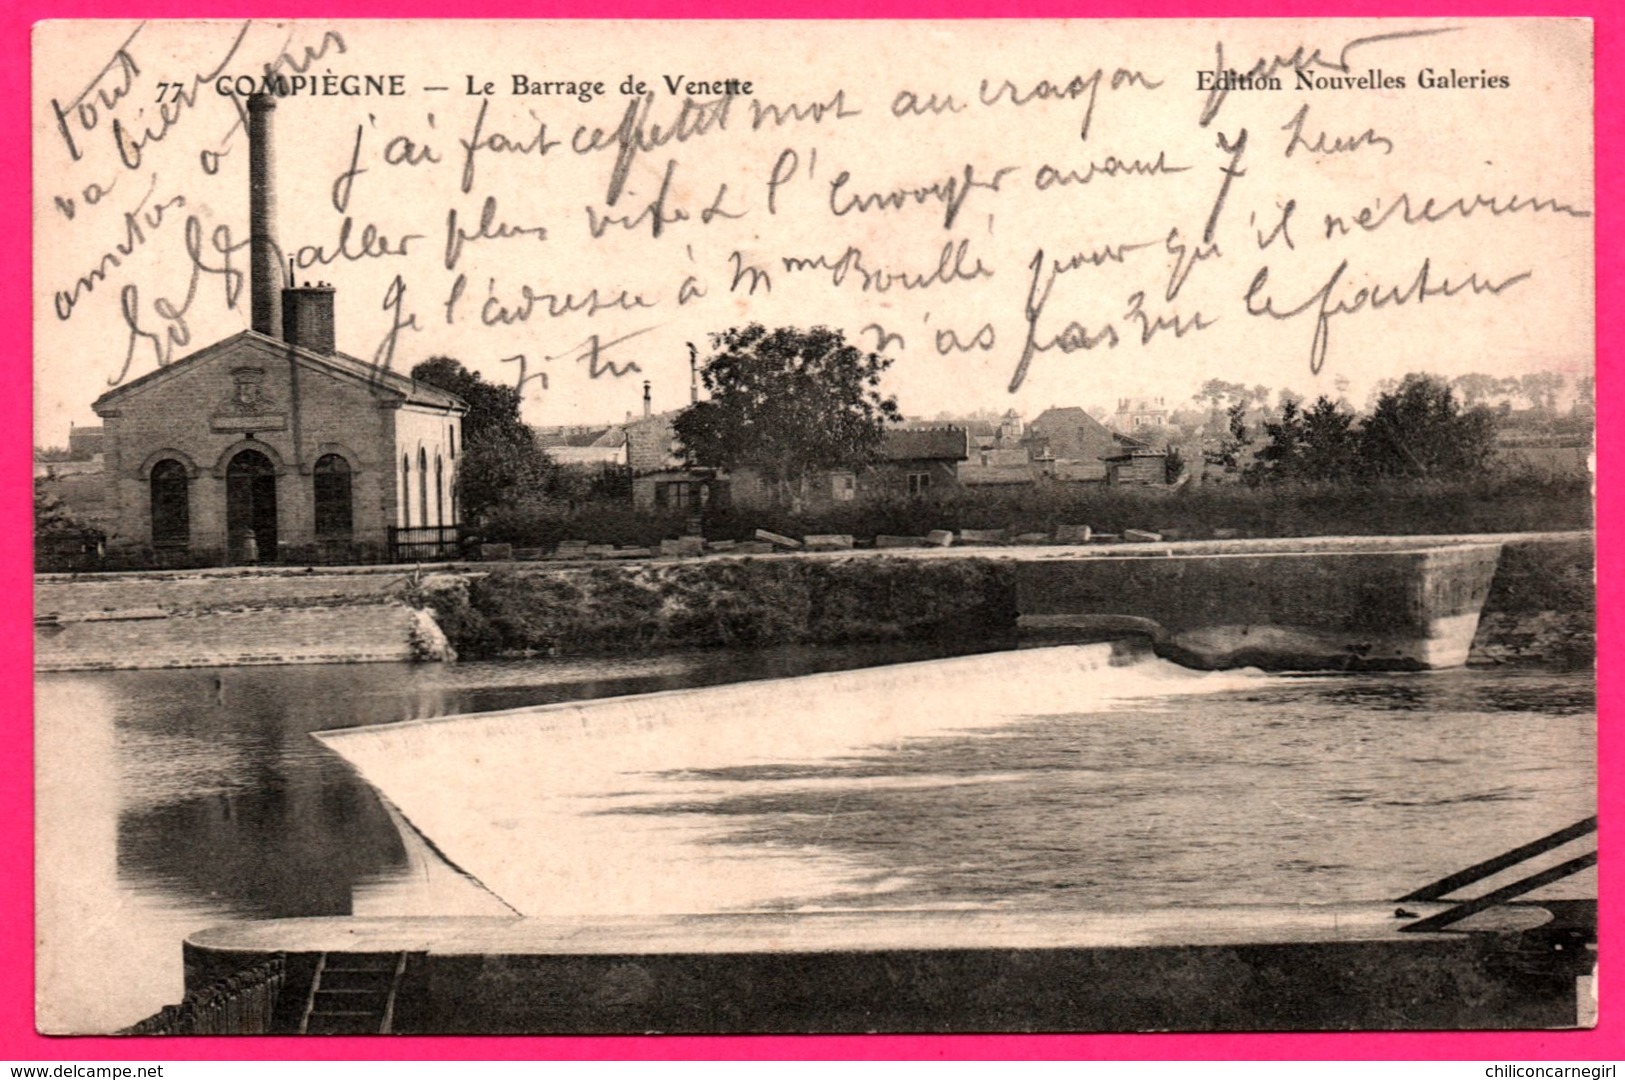 77 COMPIÈGNE — Le Barrage de Venette
Edition Nouvelles Galeries
tout
va bien
amitiés à tous
j'ai fait ce petit mot au crayon pour
aller plus vite & l'envoyer avant 7 heures
Je l'adresse à Mme Boullé pour qu'il n'érevienne
si tu n'as pas vu le facteur
www.delcampe.net
chiliconcarnegirl